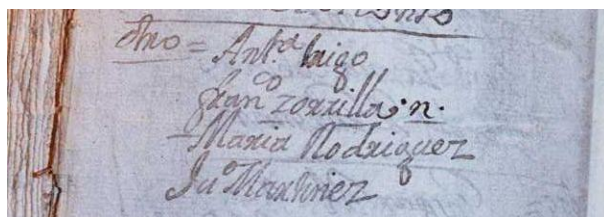 otro = Ant.ª trigo
Fran.co zorrilla. n.
Maria Rodriguez
Ju.º Martinez